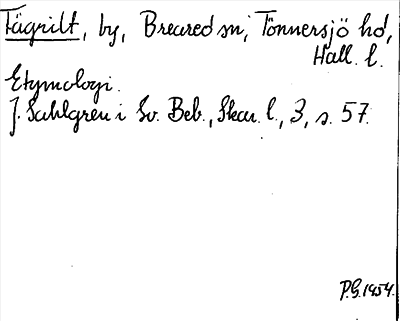 Tägrilt, by, Breared sn, Tönnersjö hd,
Hall. l.
Etymologi.
J. Sahlgren i Sv. Beb., Skar. l., 3, s. 57.
P.G. 1954.